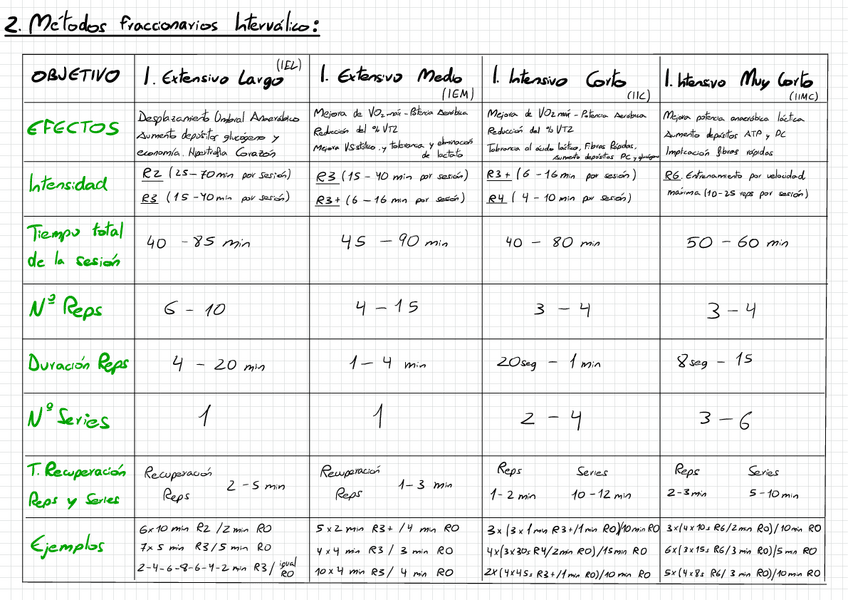 2. Métodos fraccionarios Interválico:
OBJETIVO
I. Extensivo Largo (IEL)
I. Extensivo Medio (IEM)
I. Intensivo Corto (IIC)
I. Intensivo Muy Corto (IIMC)
EFECTOS
Desplazamiento Umbral Anaeróbico
Aumento depósitos glucógeno y
economía. Hipertrofia Corazón
Mejora de VO2 máx - Potencia Aeróbica
Reducción del % VT2
Mejora VSistólico, y tolerancia y eliminación
de lactato
Mejora de VO2 máx - Potencia Aeróbica
Reducción del % VT2
Tolerancia al ácido láctico, Fibras Rápidas,
Aumento depósitos PC y glucógeno
Mejora potencia anaeróbica láctica
Aumento depósitos ATP y PC
Implicación fibras rápidas
Intensidad
R2 (25-70 min por sesión)
R3 (15-40 min por sesión)
R3 (15-40 min por sesión)
R3+ (6-16 min por sesión)
R3+ (6-16 min por sesión)
R4 (4-10 min por sesión)
R6. Entrenamiento por velocidad
máxima (10-25 reps por sesión)
Tiempo total
de la sesión
40 - 85 min
45 - 90 min
40 - 80 min
50 - 60 min
Nº Reps
6 - 10
4 - 15
3 - 4
3 - 4
Duración Reps
4 - 20 min
1 - 4 min
20seg - 1 min
8seg - 15
Nº Series
1
1
2 - 4
3 - 6
T. Recuperación
Reps y Series
Recuperación
Reps
2 - 5 min
Recuperación
Reps
1-3 min
Reps Series
1-2 min 10-12 min
Reps Series
2-3 min 5-10 min
Ejemplos
6x10 min R2 /2 min R0
7x5 min R3/5 min R0
2-4-6-8-6-4-2 min R3/ igual R0
5x2 min R3+ /4 min R0
4x4 min R3 / 3 min R0
10x4 min R3/ 4 min R0
3x(3x1 min R3+/1min R0)/10min R0
4x(3x30s R4/2min R0)/15min R0
2x(4x45s R3+/1min R0)/10 min R0
3x(4x10s R6/2 min R0)/10min R0
6x(3x15s R6/3 min R0)/5 min R0
5x(4x8s R6/ 3 min R0)/10 min R0